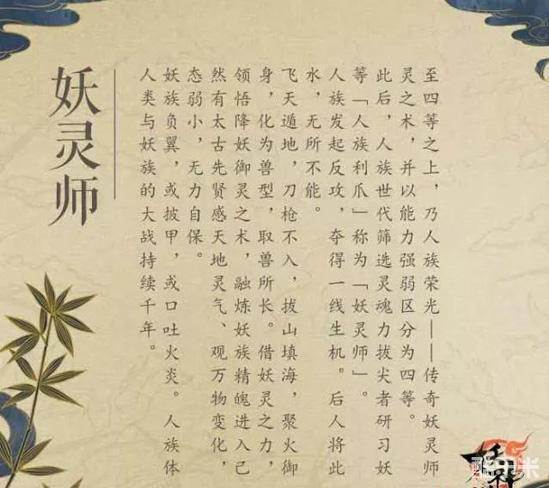 妖灵师
人类与妖族的大战持续千年。
妖族负翼，或披甲，或口吐火炎。人族体
态弱小，无力自保。
然有太古先贤感天地灵气、观万物变化，
领悟降妖御灵之术，融炼妖族精魄进入己
身，化为兽型，取兽所长。借妖灵之力，
飞天遁地，刀枪不入，拔山填海，聚火御
水，无所不能。
人族发起反攻，夺得一线生机。后人将此
等「人族利爪」称为「妖灵师」。
此后，人族世代筛选灵魂力拔尖者研习妖
灵之术，并以能力强弱区分为四等。
至四等之上，乃人族荣光——传奇妖灵师